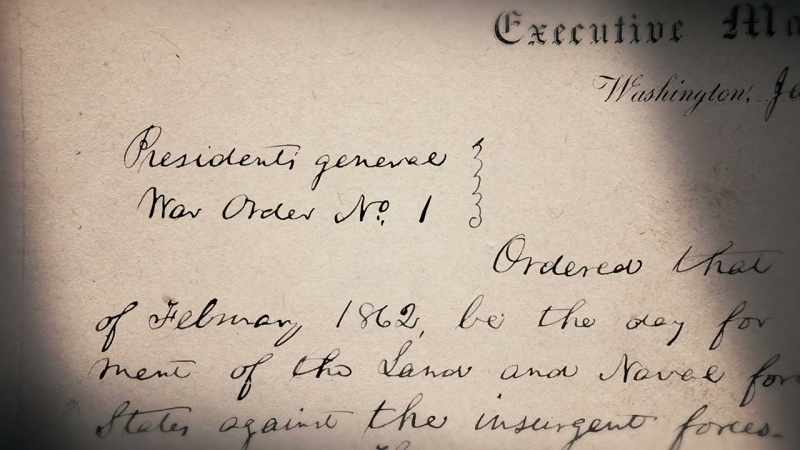 Executive Ma
Washington, Ja
Presidents general
War Order No. 1
Ordered that
of February 1862, be the day for
ment of the Land and Naval for
States against the insurgent forces.